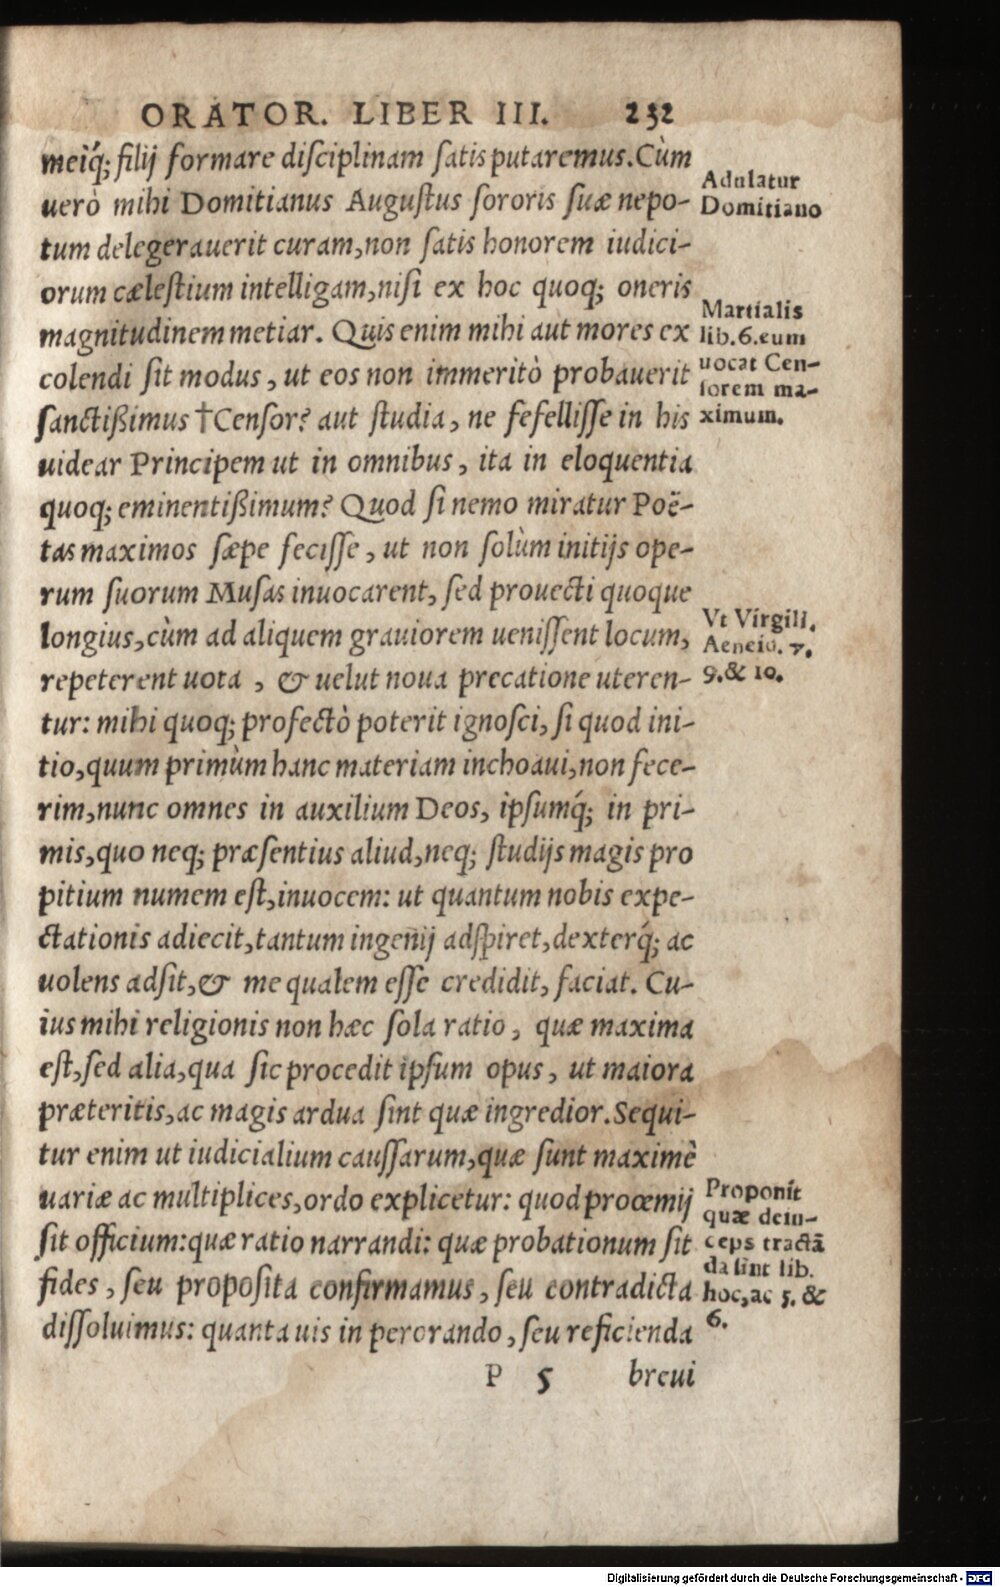 ORATOR. LIBER III. 232
meiq́; filij formare disciplinam satis putaremus. Cùm
uerò mihi Domitianus Augustus sororis suæ nepo-
tum delegerauerit curam, non satis honorem iudici-
orum cælestium intelligam, nisi ex hoc quoq; oneris
magnitudinem metiar. Quis enim mihi aut mores ex
colendi sit modus, ut eos non immeritò probauerit
sanctißimus †Censor? aut studia, ne fefellisse in his
uidear Principem ut in omnibus, ita in eloquentia
quoq; eminentißimum? Quod si nemo miratur Poë-
tas maximos sæpe fecisse, ut non solùm initijs ope-
rum suorum Musas inuocarent, sed prouecti quoque
longius, cùm ad aliquem grauiorem uenissent locum,
repeterent uota, & uelut noua precatione uteren-
tur: mihi quoq; profectò poterit ignosci, si quod ini-
tio, quum primùm hanc materiam inchoaui, non fece-
rim, nunc omnes in auxilium Deos, ipsumq́; in pri-
mis, quo neq; præsentius aliud, neq; studijs magis pro
pitium numem est, inuocem: ut quantum nobis expe-
ctationis adiecit, tantum ingenij adspiret, dexterq́; ac
uolens adsit, & me qualem esse credidit, faciat. Cu-
ius mihi religionis non hæc sola ratio, quæ maxima
est, sed alia, qua sic procedit ipsum opus, ut maiora
præteritis, ac magis ardua sint quæ ingredior. Sequi-
tur enim ut iudicialium caussarum, quæ sunt maximè
uariæ ac multiplices, ordo explicetur: quod prooemij
sit officium: quæ ratio narrandi: quæ probationum sit
fides, seu proposita confirmamus, seu contradicta
dissoluimus: quanta uis in perorando, seu reficienda
P 5 breui
Adulatur
Domitiano
Martialis
lib.6.eum
uocat Cen-
sorem ma-
ximum.
Vt Virgili.
Aeneid. 7.
9.& 10.
Proponit
quæ dein-
ceps tractã
da sint lib.
hoc, ac 5. &
6.
Digitalisierung gefördert durch die Deutsche Forschungsgemeinschaft - DFG